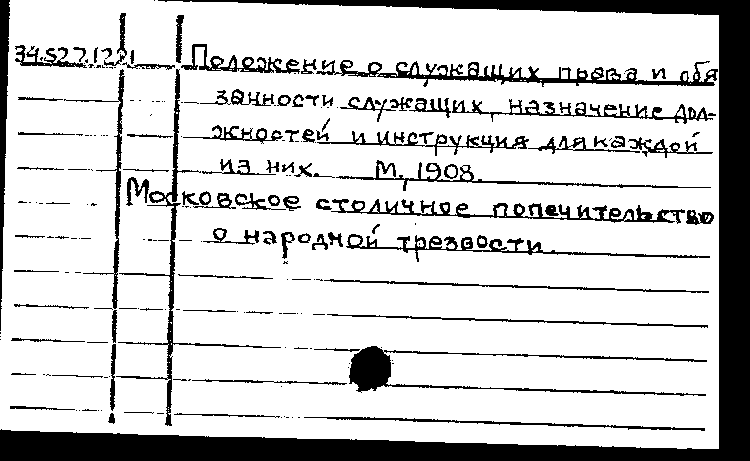 34.527.1221 Положение о служащих, права и обя
занности служащих, назначение дол-
жностей и инструкция для каждой
из них. М, 1908.
Московское столичное попечительство
о народной трезвости.